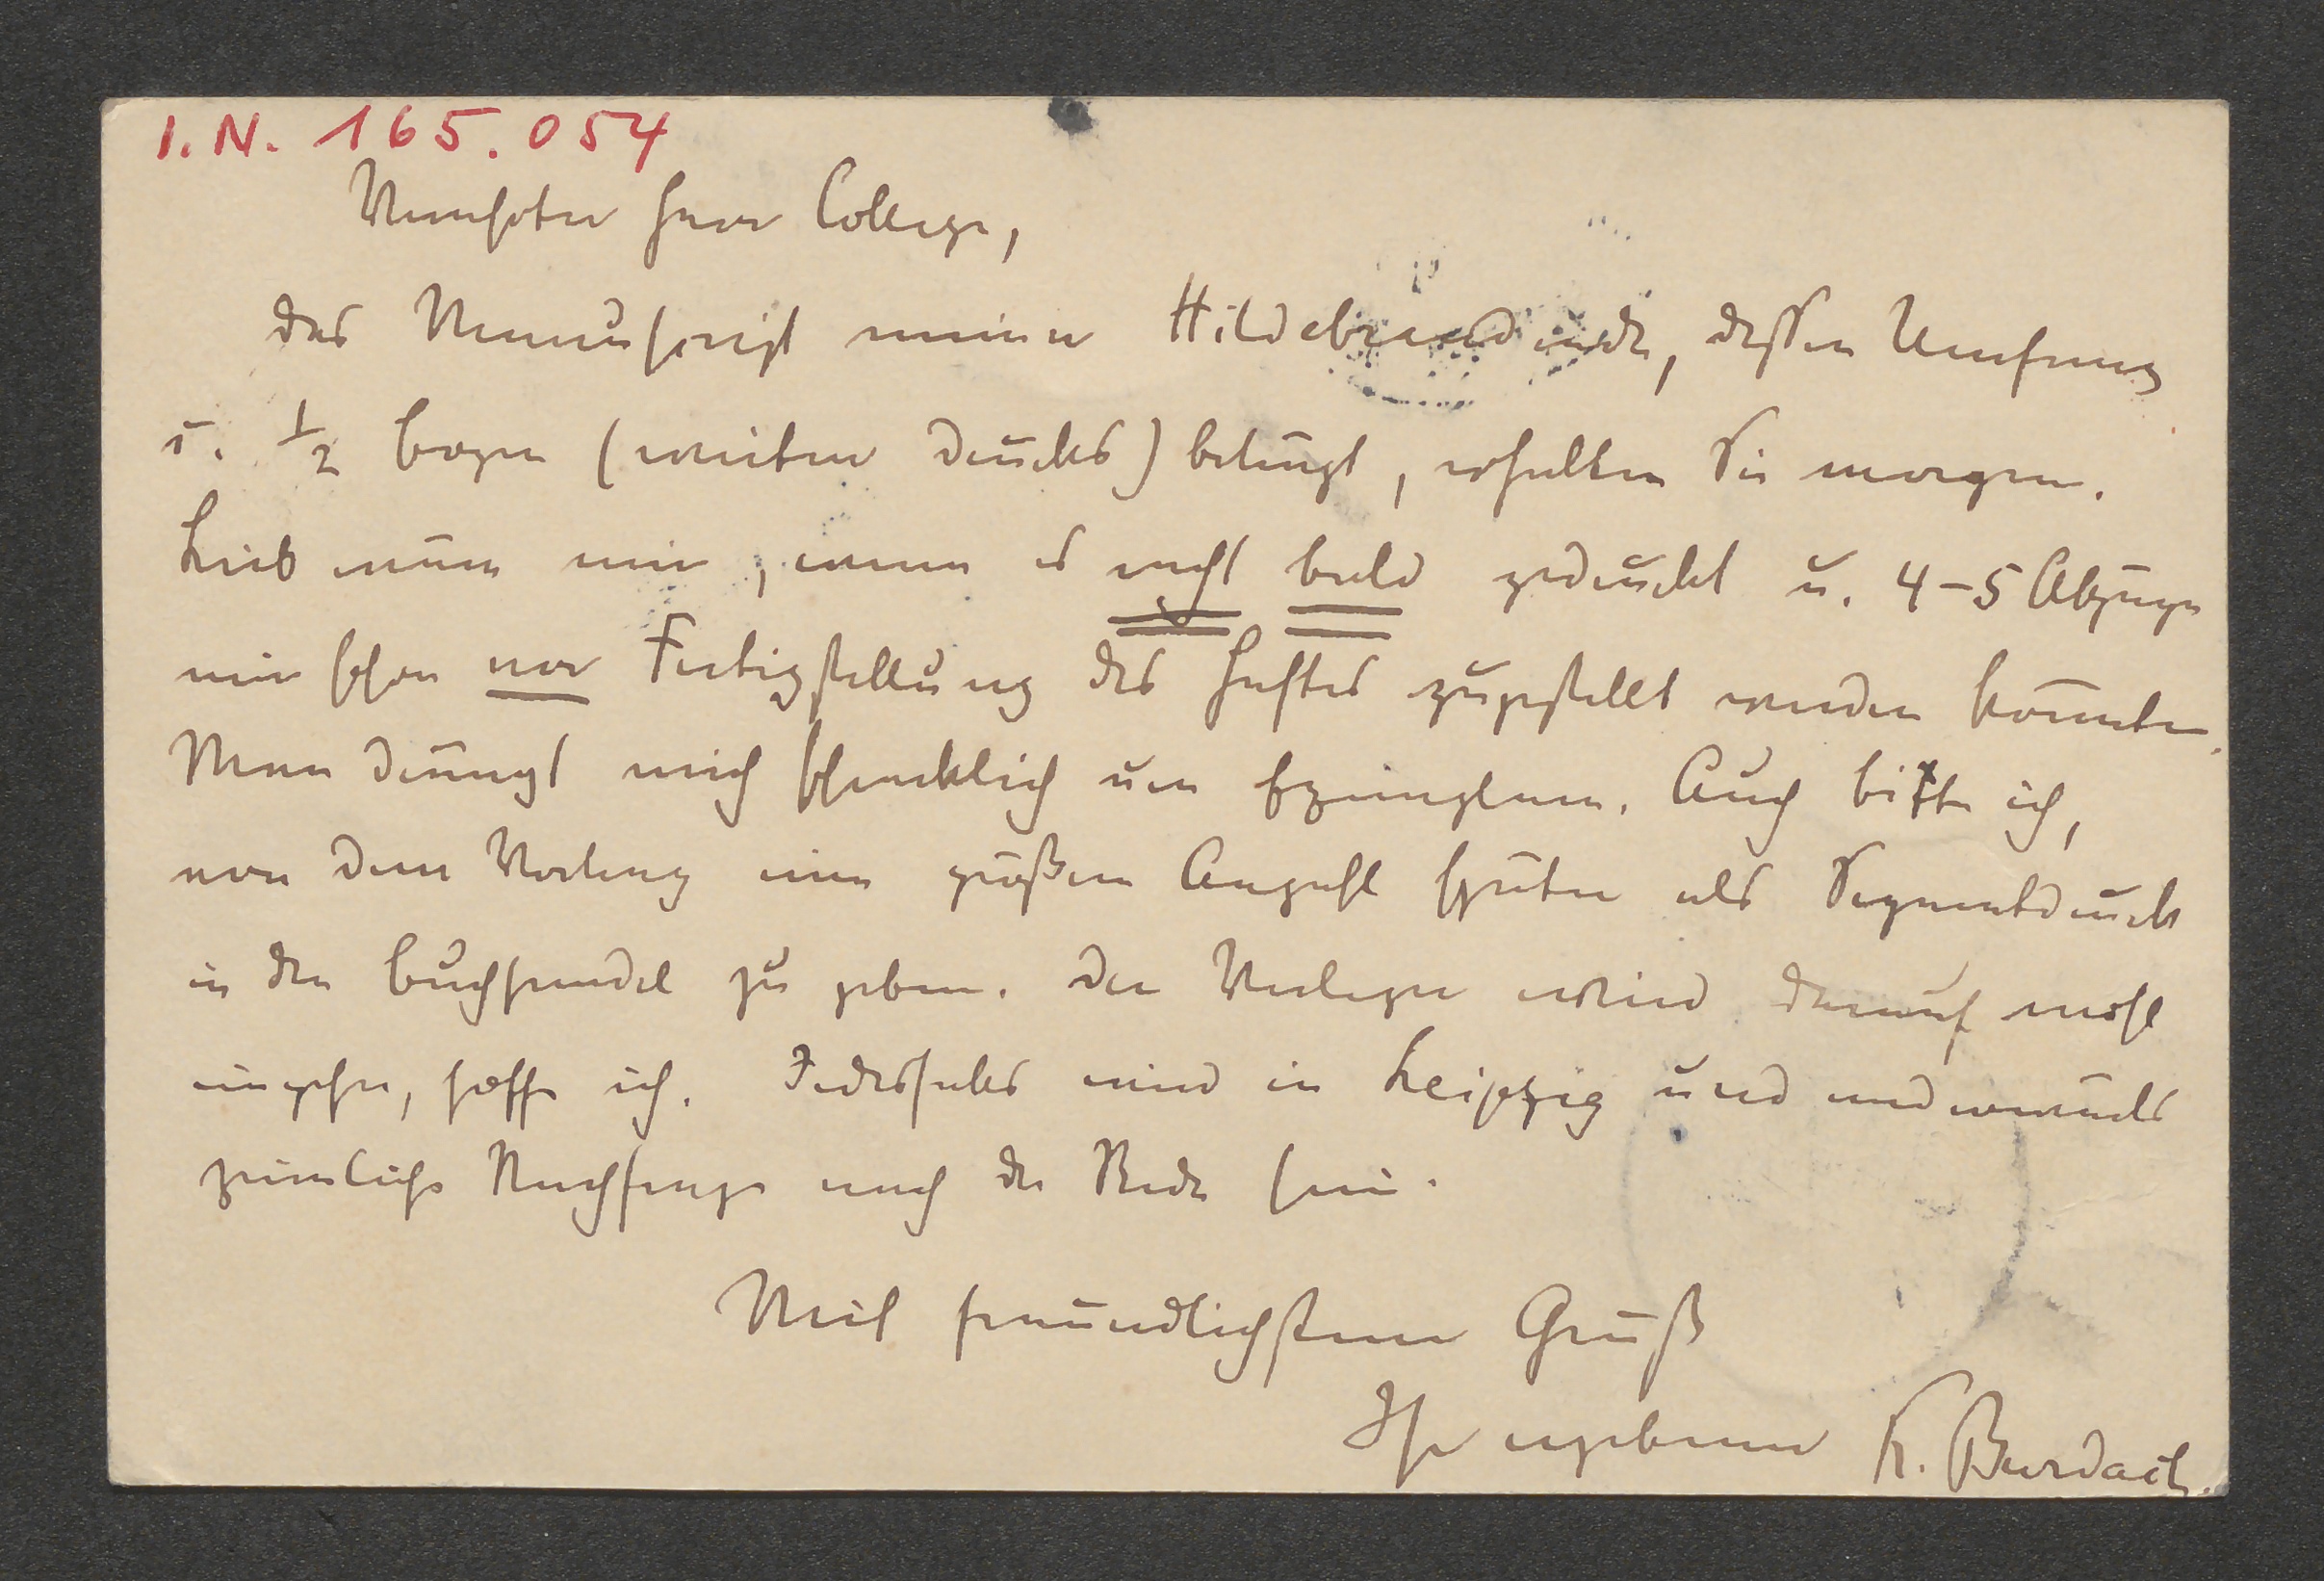 I.N. 165.054
Verehrter Herr College,
das Manuscript meiner Hildebrandrede, dessen Umfang
c. ½ Bogen (weiten Drucks) beträgt, erhalten Sie morgen.
Lieb wäre mir, wenn es recht bald gedruckt u. 4–5 Abzüge
mir schon vor Fertigstellung des Heftes zugestellt werden könnten.
Man drängt mich schrecklich um Exemplare. Auch bitte ich,
von dem Vortrag eine größere Anzahl später als Separatdruck
in den Buchhandel zu geben. Der Verleger wird darauf wohl
eingehen, hoffe ich. Jedesfalls wird in Leipzig und anderwärts
ziemliche Nachfrage nach der Rede sein.
Mit freundlichstem Gruß
Ihr ergebener K. Burdach.